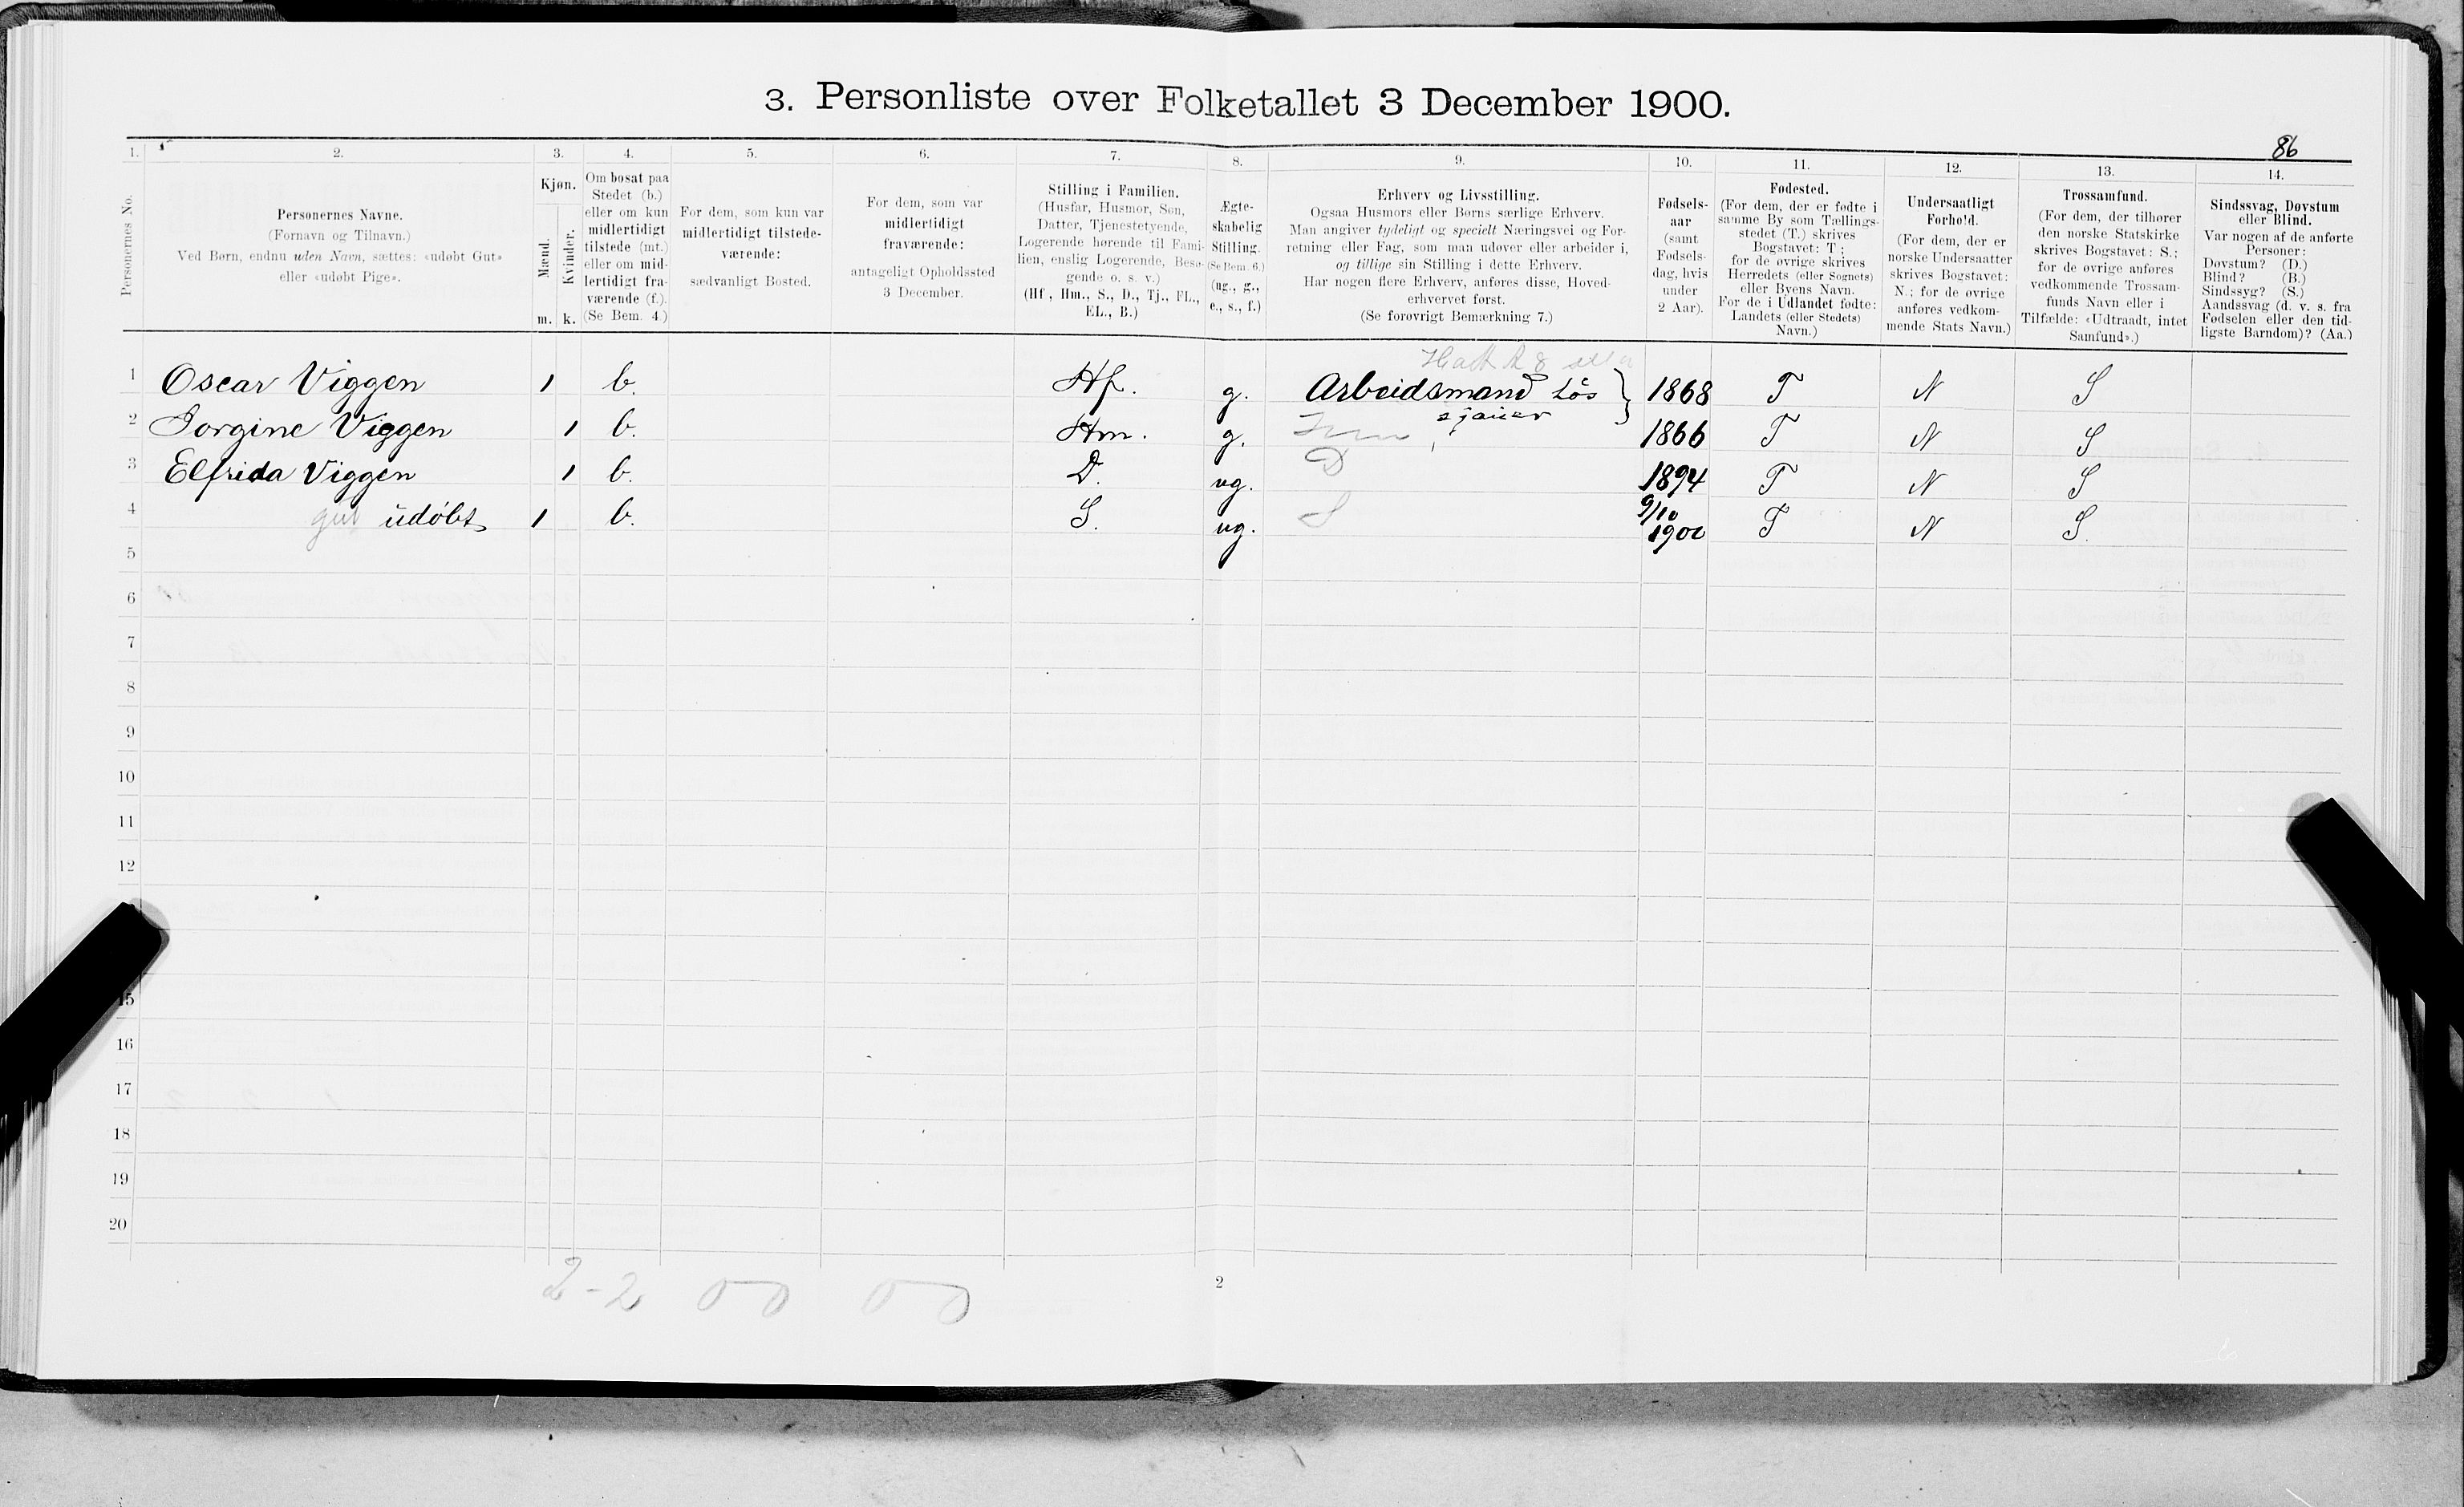 3. Personliste over Folketallet 3 December 1900.
86
1. 2. 3. 4. 5. 6. 7. 8. 9. 10. 11. 12. 13. 14.
Personernes No.
Personernes Navne.
(Fornavn og Tilnavn.)
Ved Børn, endnu uden Navn, sættes: «udøbt Gut»
eller «udøbt Pige».
Kjøn.
Mænd.
Kvinder.
m. k.
Om bosat paa
Stedet (b.)
eller om kun
midlertidigt
tilstede (mt.)
eller om mid-
lertidigt fra-
værende (f.).
(Se Bem. 4.)
For dem, som kun var
midlertidigt tilstede-
værende:
sædvanligt Bosted.
For dem, som var
midlertidigt
fraværende:
antageligt Opholdssted
3 December.
Stilling i Familien.
(Husfar, Husmor, Søn,
Datter, Tjenestetyende,
Logerende hørende til Fami-
lien, enslig Logerende, Besø-
gende o. s. v.)
(Hf., Hm., S., D., Tj., FL.,
EL., B.)
Ægte-
skabelig
Stilling.
(Se Bem. 6.)
(ug., g.,
e., s., f.)
Erhverv og Livsstilling.
Ogsaa Husmors eller Børns særlige Erhverv.
Man angiver tydeligt og specielt Næringsvei og For-
retning eller Fag, som man udøver eller arbeider i,
og tillige sin Stilling i dette Erhverv.
Har nogen flere Erhverv, anføres disse, Hoved-
erhvervet først.
(Se forøvrigt Bemærkning 7.)
Fødsels-
aar
(samt
Fødsels-
dag, hvis
under
2 Aar).
Fødested.
(For dem, der er fødte i
samme By som Tællings-
stedet (T.) skrives
Bogstavet: T;
for de øvrige skrives
Herredets (eller Sognets)
eller Byens Navn.
For de i Udlandet fødte:
Landets (eller Stedets)
Navn.)
Undersaatligt
Forhold.
(For dem, der er
norske Undersaatter
skrives Bogstavet:
N.; for de øvrige
anføres vedkom-
mende Stats Navn.)
Trossamfund.
(For dem, der tilhører
den norske Statskirke
skrives Bogstavet: S.;
for de øvrige anføres
vedkommende Trossam-
funds Navn eller i
Tilfælde: «Udtraadt, intet
Samfund».)
Sindssvag, Døvstum
eller Blind.
Var nogen af de anførte
Personer:
Døvstum? (D.)
Blind? (B.)
Sindssyg? (S.)
Aandssvag (d. v. s. fra
Fødselen eller den tid-
ligste Barndom)? (Aa.)
1 Oscar Viggen 1 b. Hf. g. Arbeidsmand Løs 1868 T N S
sjauer
2 Jorgine Viggen 1 b. Hm. g. 1866 T N S
3 Elfrida Viggen 1 b. D. ug. D 1894 T N S
4 gut udøbt 1 b. S. ug. S 9/10 1900 T N S.
5
6
7
8
9
10
11
12
15
16
17
18
19
20
2-2 0 0 0 0
2